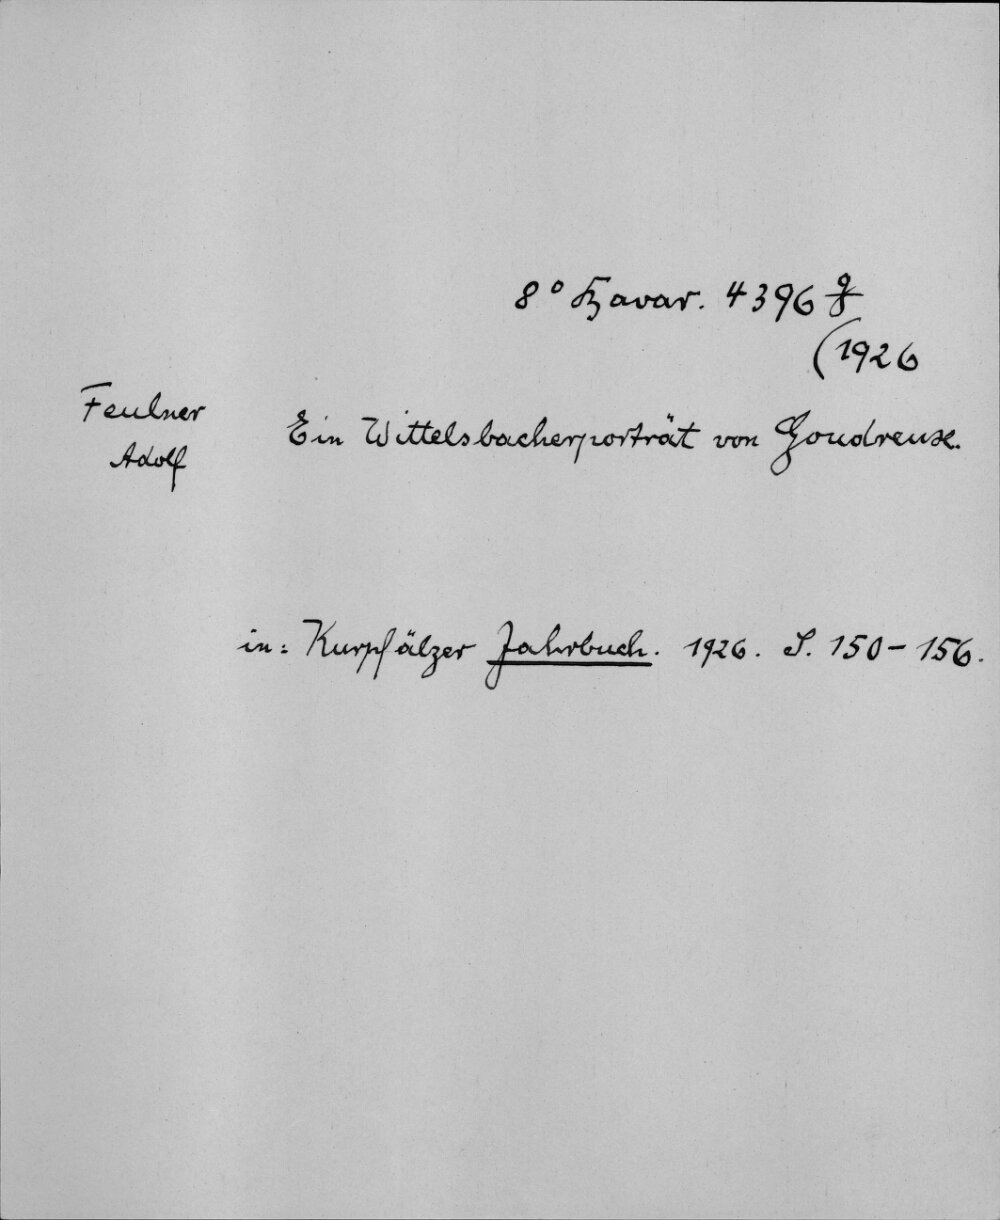 8° Bavar. 4396 g/8
(1926
Feulner
Adolf
Ein Wittelsbacherporträt von Goudreaux.
in: Kurpfälzer Jahrbuch. 1926. S. 150-156.